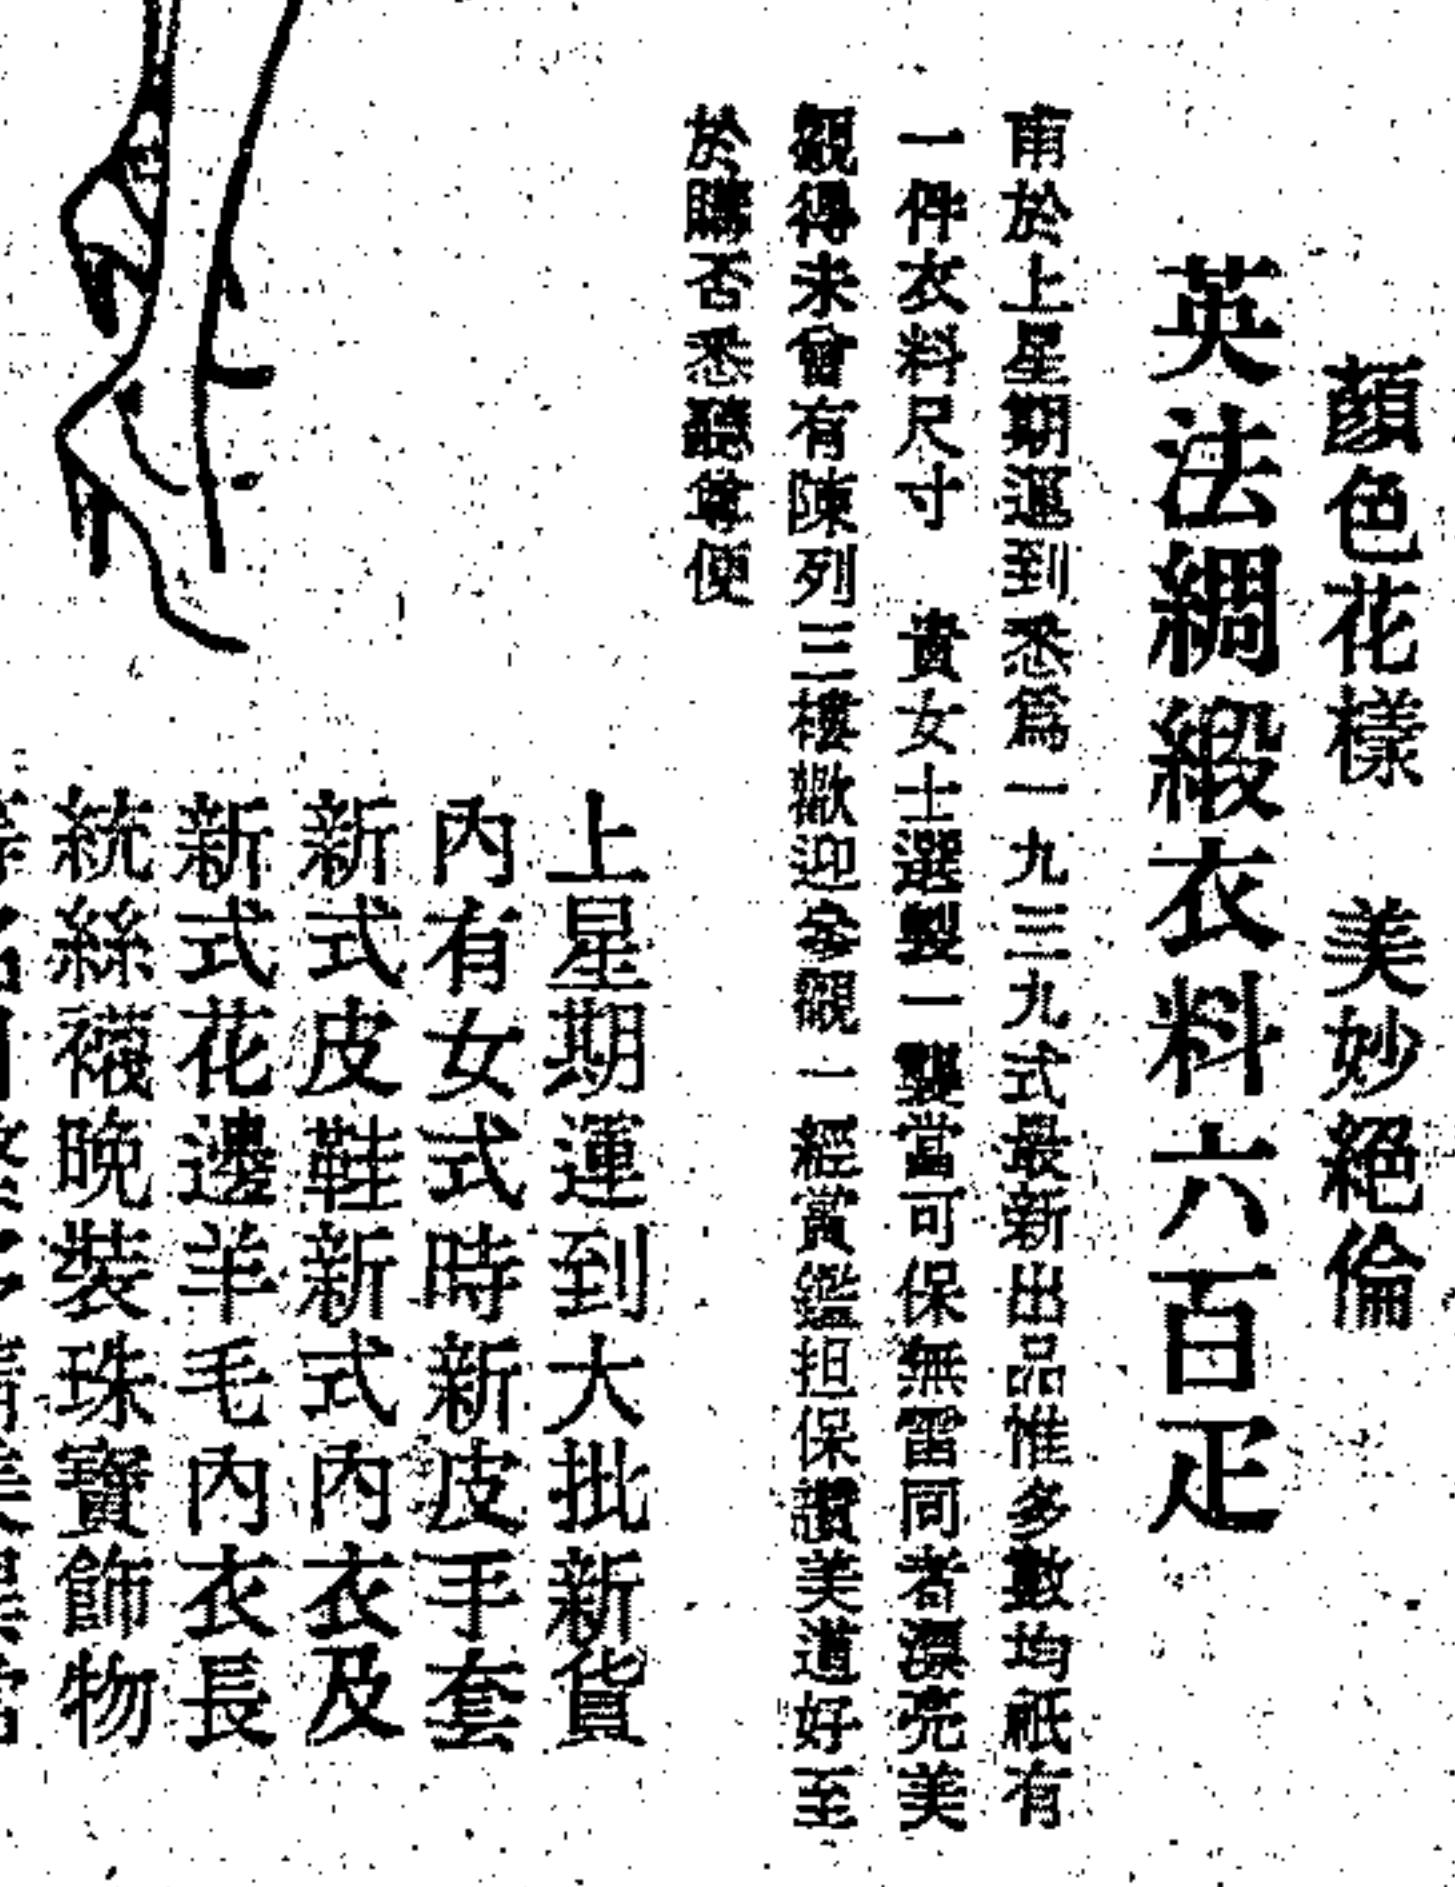 顏色花樣　美妙絕倫
英法綢緞衣料六百疋
甫於上星期運到悉爲一九三九式最新出品惟多數均祇有
一件衣料尺寸　貴女士選製一襲當可保無雷同者漂亮美
觀得未曾有陳列三樓歡迎參觀一經賞鑑担保讚美道好至
於購否悉聽尊便
上星期運到大批新貨
內有女式時新皮手套
新式皮鞋新式內衣及
新式花邊羊毛內衣長
統絲襪晚裝珠寶飾物